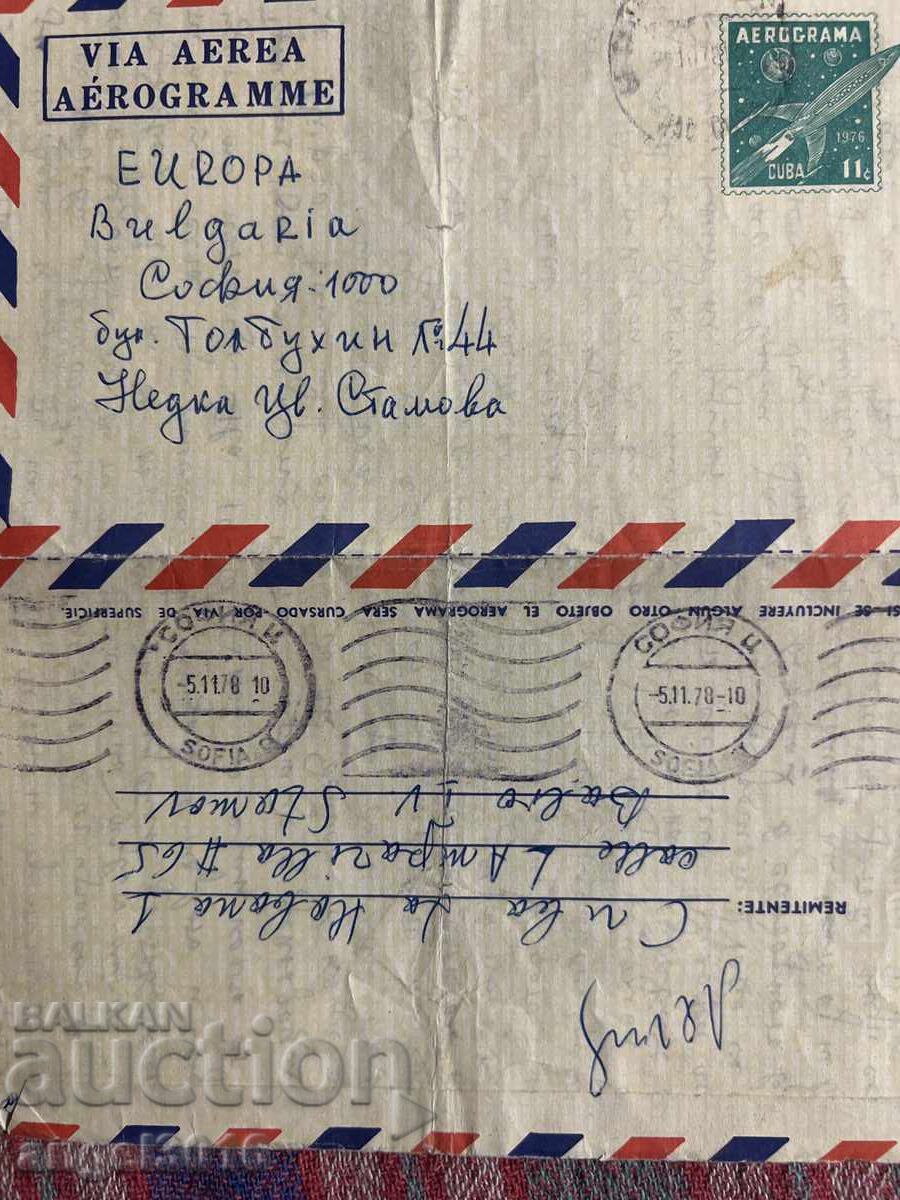 VIA AEREA
AÉROGRAMME
AEROGRAMA
1976
CUBA 11¢
EUROPA
Bulgaria
София-1000
бул. Толбухин № 44
Недка Цв. Стамова
SI SE INCLUYERE ALGUN OTRO OBJETO EL AEROGRAMA SERA CURSADO POR VIA DE SUPERFICIE
СОФИЯ Ц
-5.11.78 10
SOFIA
СОФИЯ Ц
-5.11.78-10
SOFIA
REMITENTE: Cuba La Habana 1
calle LAmparilla #65
Stamov
BALKAN
auction
angel3016